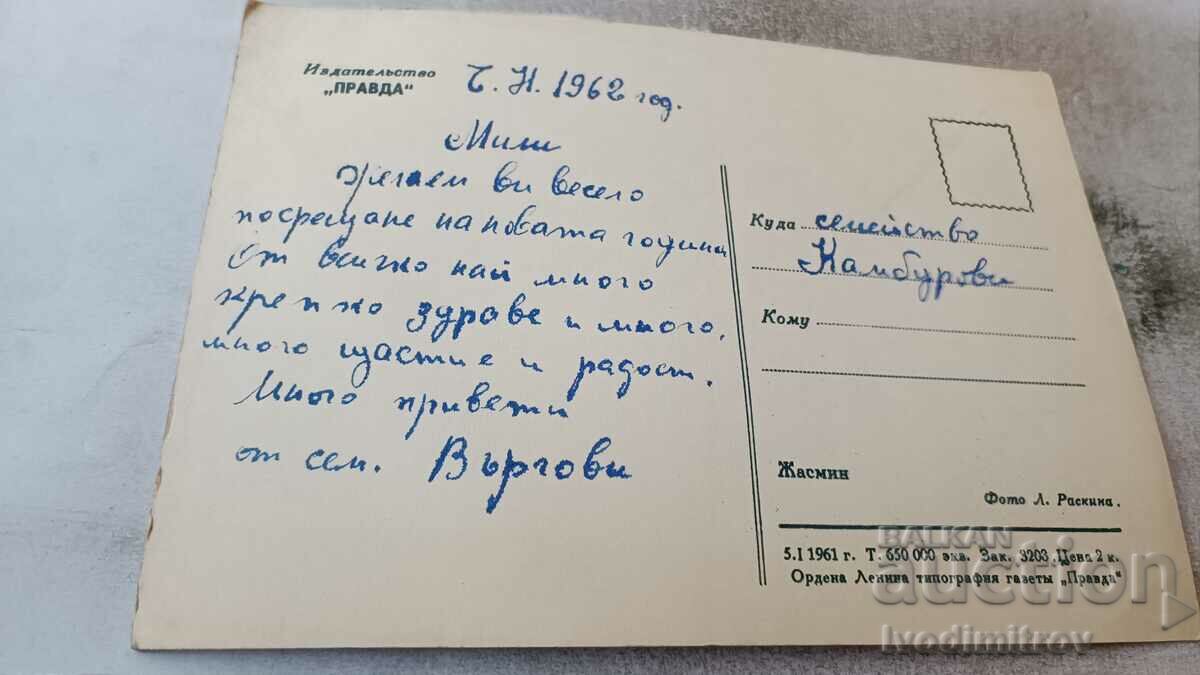 Издательство
„ПРАВДА“
Ч. Н. 1962 год.
Мили
Желаем ви весело
посрещане на новата година
От всичко най много
крепко здраве и много,
много щастие и радост.
Много привети
от сем. Възгови
Куда семейство
Камбурови
Кому
Жасмин
Фото Л. Раскина.
5.I 1961 г. Т. 650 000 экз. Зак. 3203 Цена 2 к.
Ордена Ленина типография газеты „Правда“
BALKAN
auction
ivodimitrov